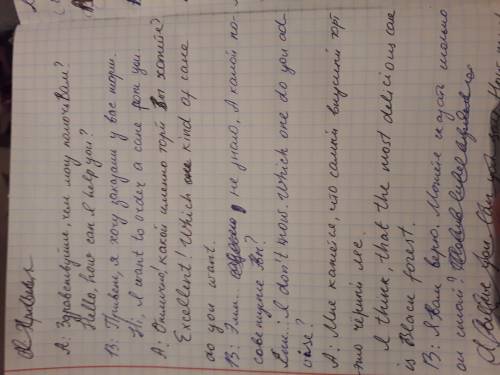 А: Здравствуйте, чем могу помочь вам?
Hello, how can I help you?
В: Привет, я хочу заказать у вас торт.
Hi, I want to order a cane from you.
А: Отлично! какой именно торт вы хотите?
Excellent! Which one kind of cane
do you want.
В: Эмм... я не знаю, А какой по-
советуете Вы?
Emm... I don't know. Which one do you ad-
vise?
А: Мне кажется, что самый вкусный торт
это черный лес.
I think, that the most delicious cane
is Black forest.
В: Я вам верю. Можете сказать сколько
он стоит?
I believe you. Can you